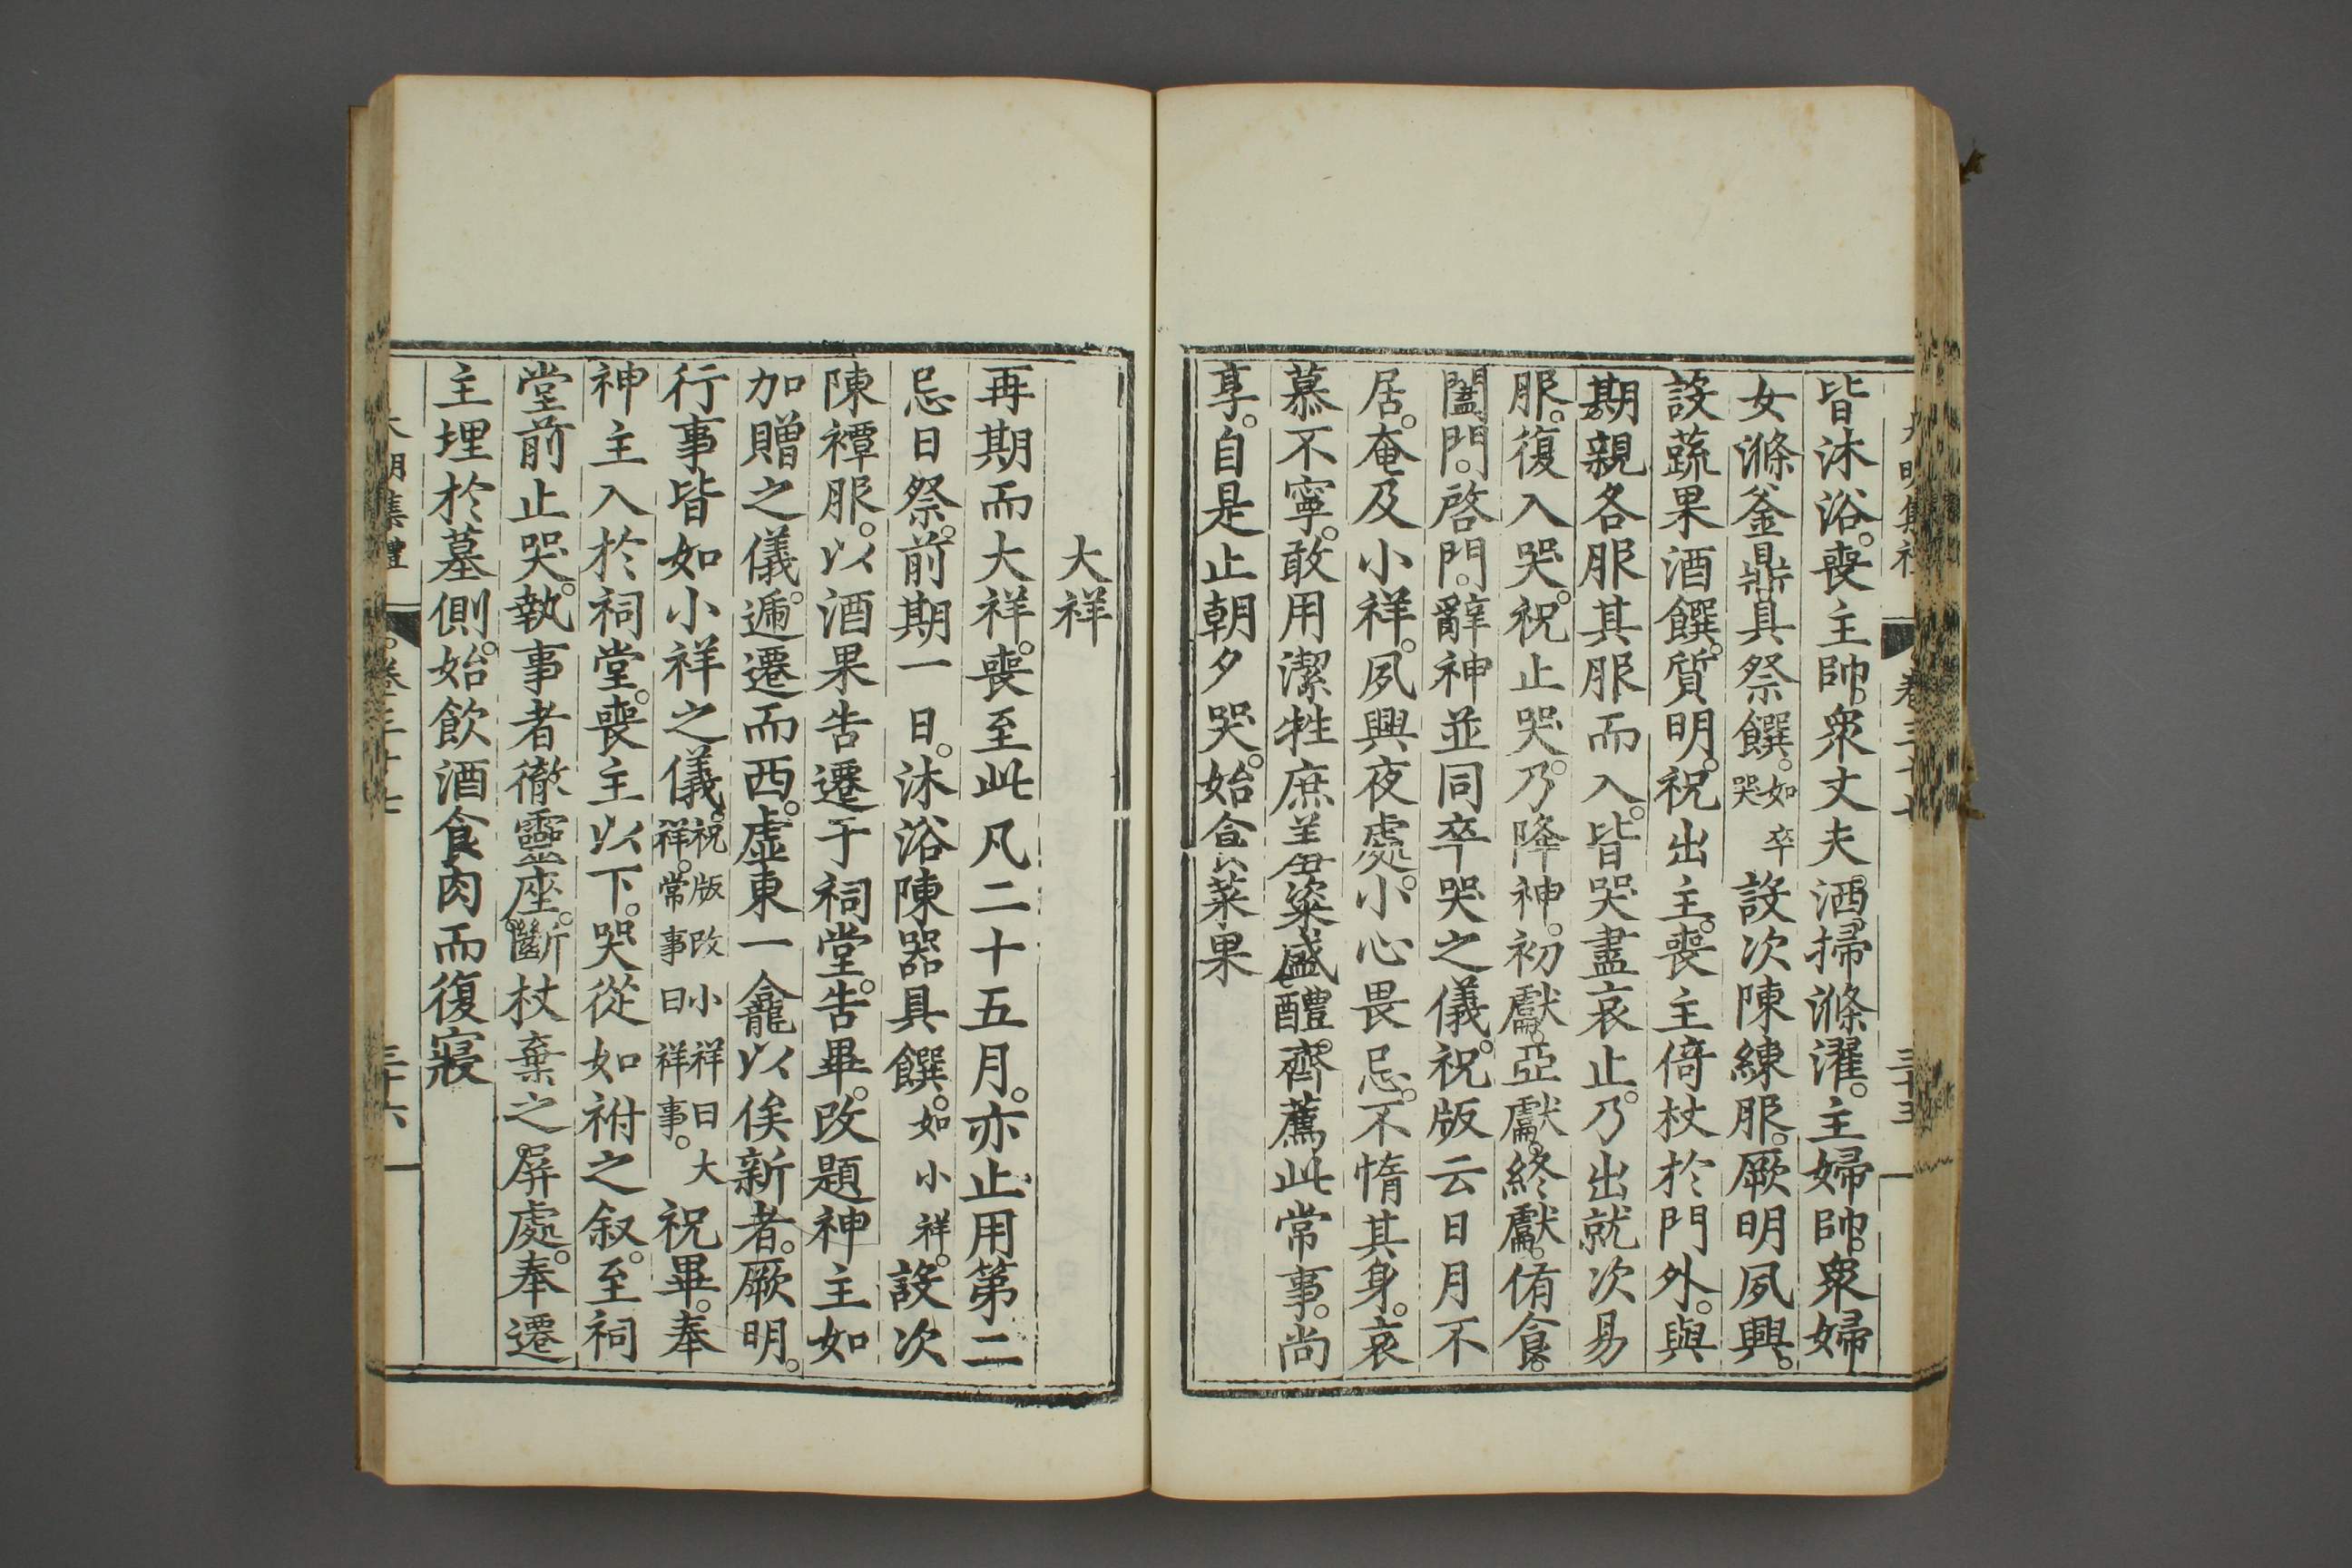 皆沐浴。喪主帥衆丈夫。洒掃滌濯。主婦帥衆婦
女滌釜鼎具祭饌。如卒哭設次陳練服。厥明夙興。
設蔬果酒饌。質明。祝出主。喪主倚杖於門外。與
期親各服其服而入。皆哭盡哀止。乃出就次易
服。復入哭。祝止哭。乃降神。初獻。亞獻。終獻。侑食。
闔門。啓門。辭神並同卒哭之儀。祝版云日月不
居。奄及小祥。夙興夜處。小心畏忌。不惰其身。哀
慕不寧。敢用潔牲庶羞粢盛醴齊。薦此常事。尚
享。自是止朝夕哭。始食菜果
大祥
再期而大祥。喪至此凡二十五月。亦止用第二
忌日祭。前期一日。沐浴陳器具饌。如小祥。設次
陳禫服。以酒果告遷于祠堂。告畢。改題神主如
加贈之儀。遞遷而西。虛東一龕以俟新者。厥明。
行事皆如小祥之儀。祝版改小祥曰大祥。常事曰祥事。祝畢。奉
神主入於祠堂。喪主以下。哭從如祔之叙。至祠
堂前止哭。執事者徹靈座。斷杖棄之。屏處。奉遷
主埋於墓側。始飲酒食肉而復寢